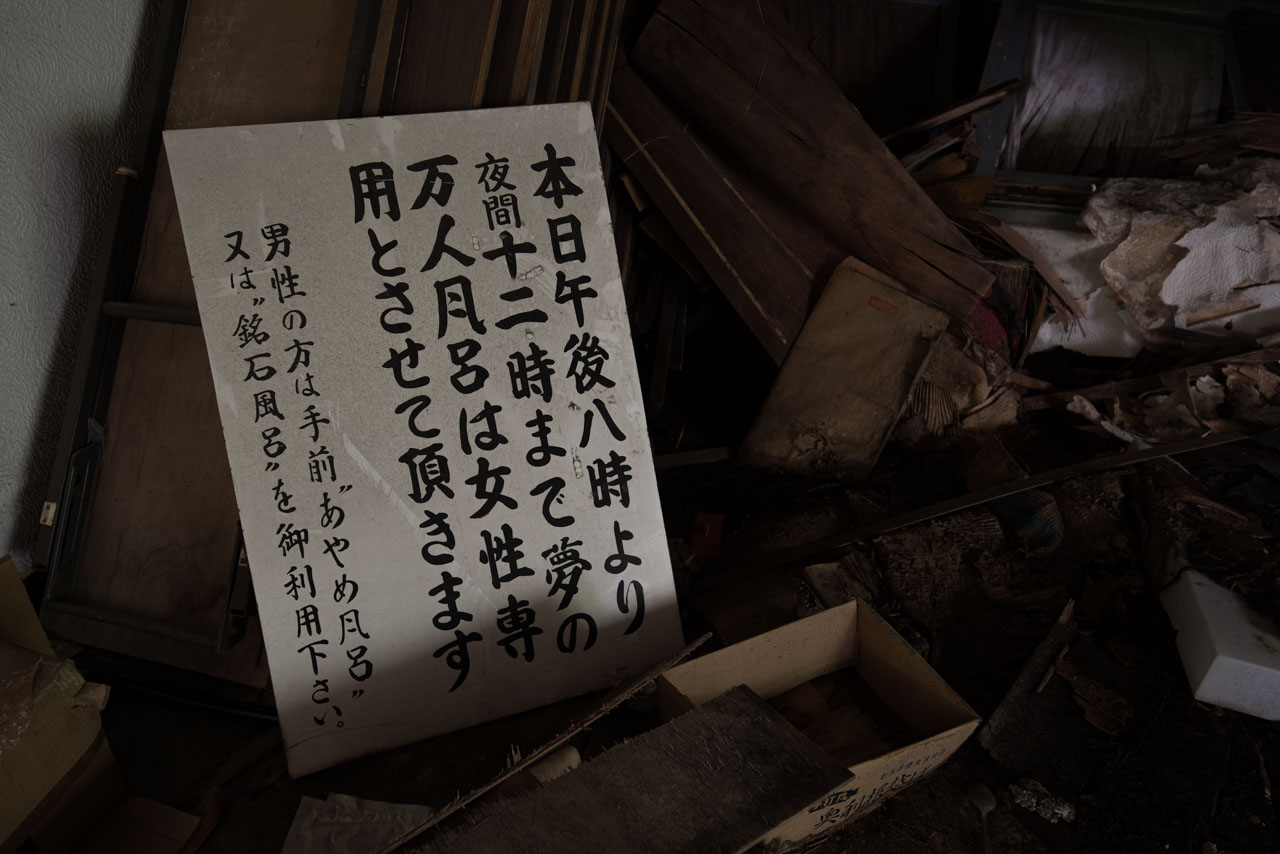 本日午後八時より
夜間十二時まで夢の
万人凬呂は女性専
用とさせて頂きます
男性の方は手前〝あやめ凬呂〟
又は〝銘石風呂〟を御利用下さい。